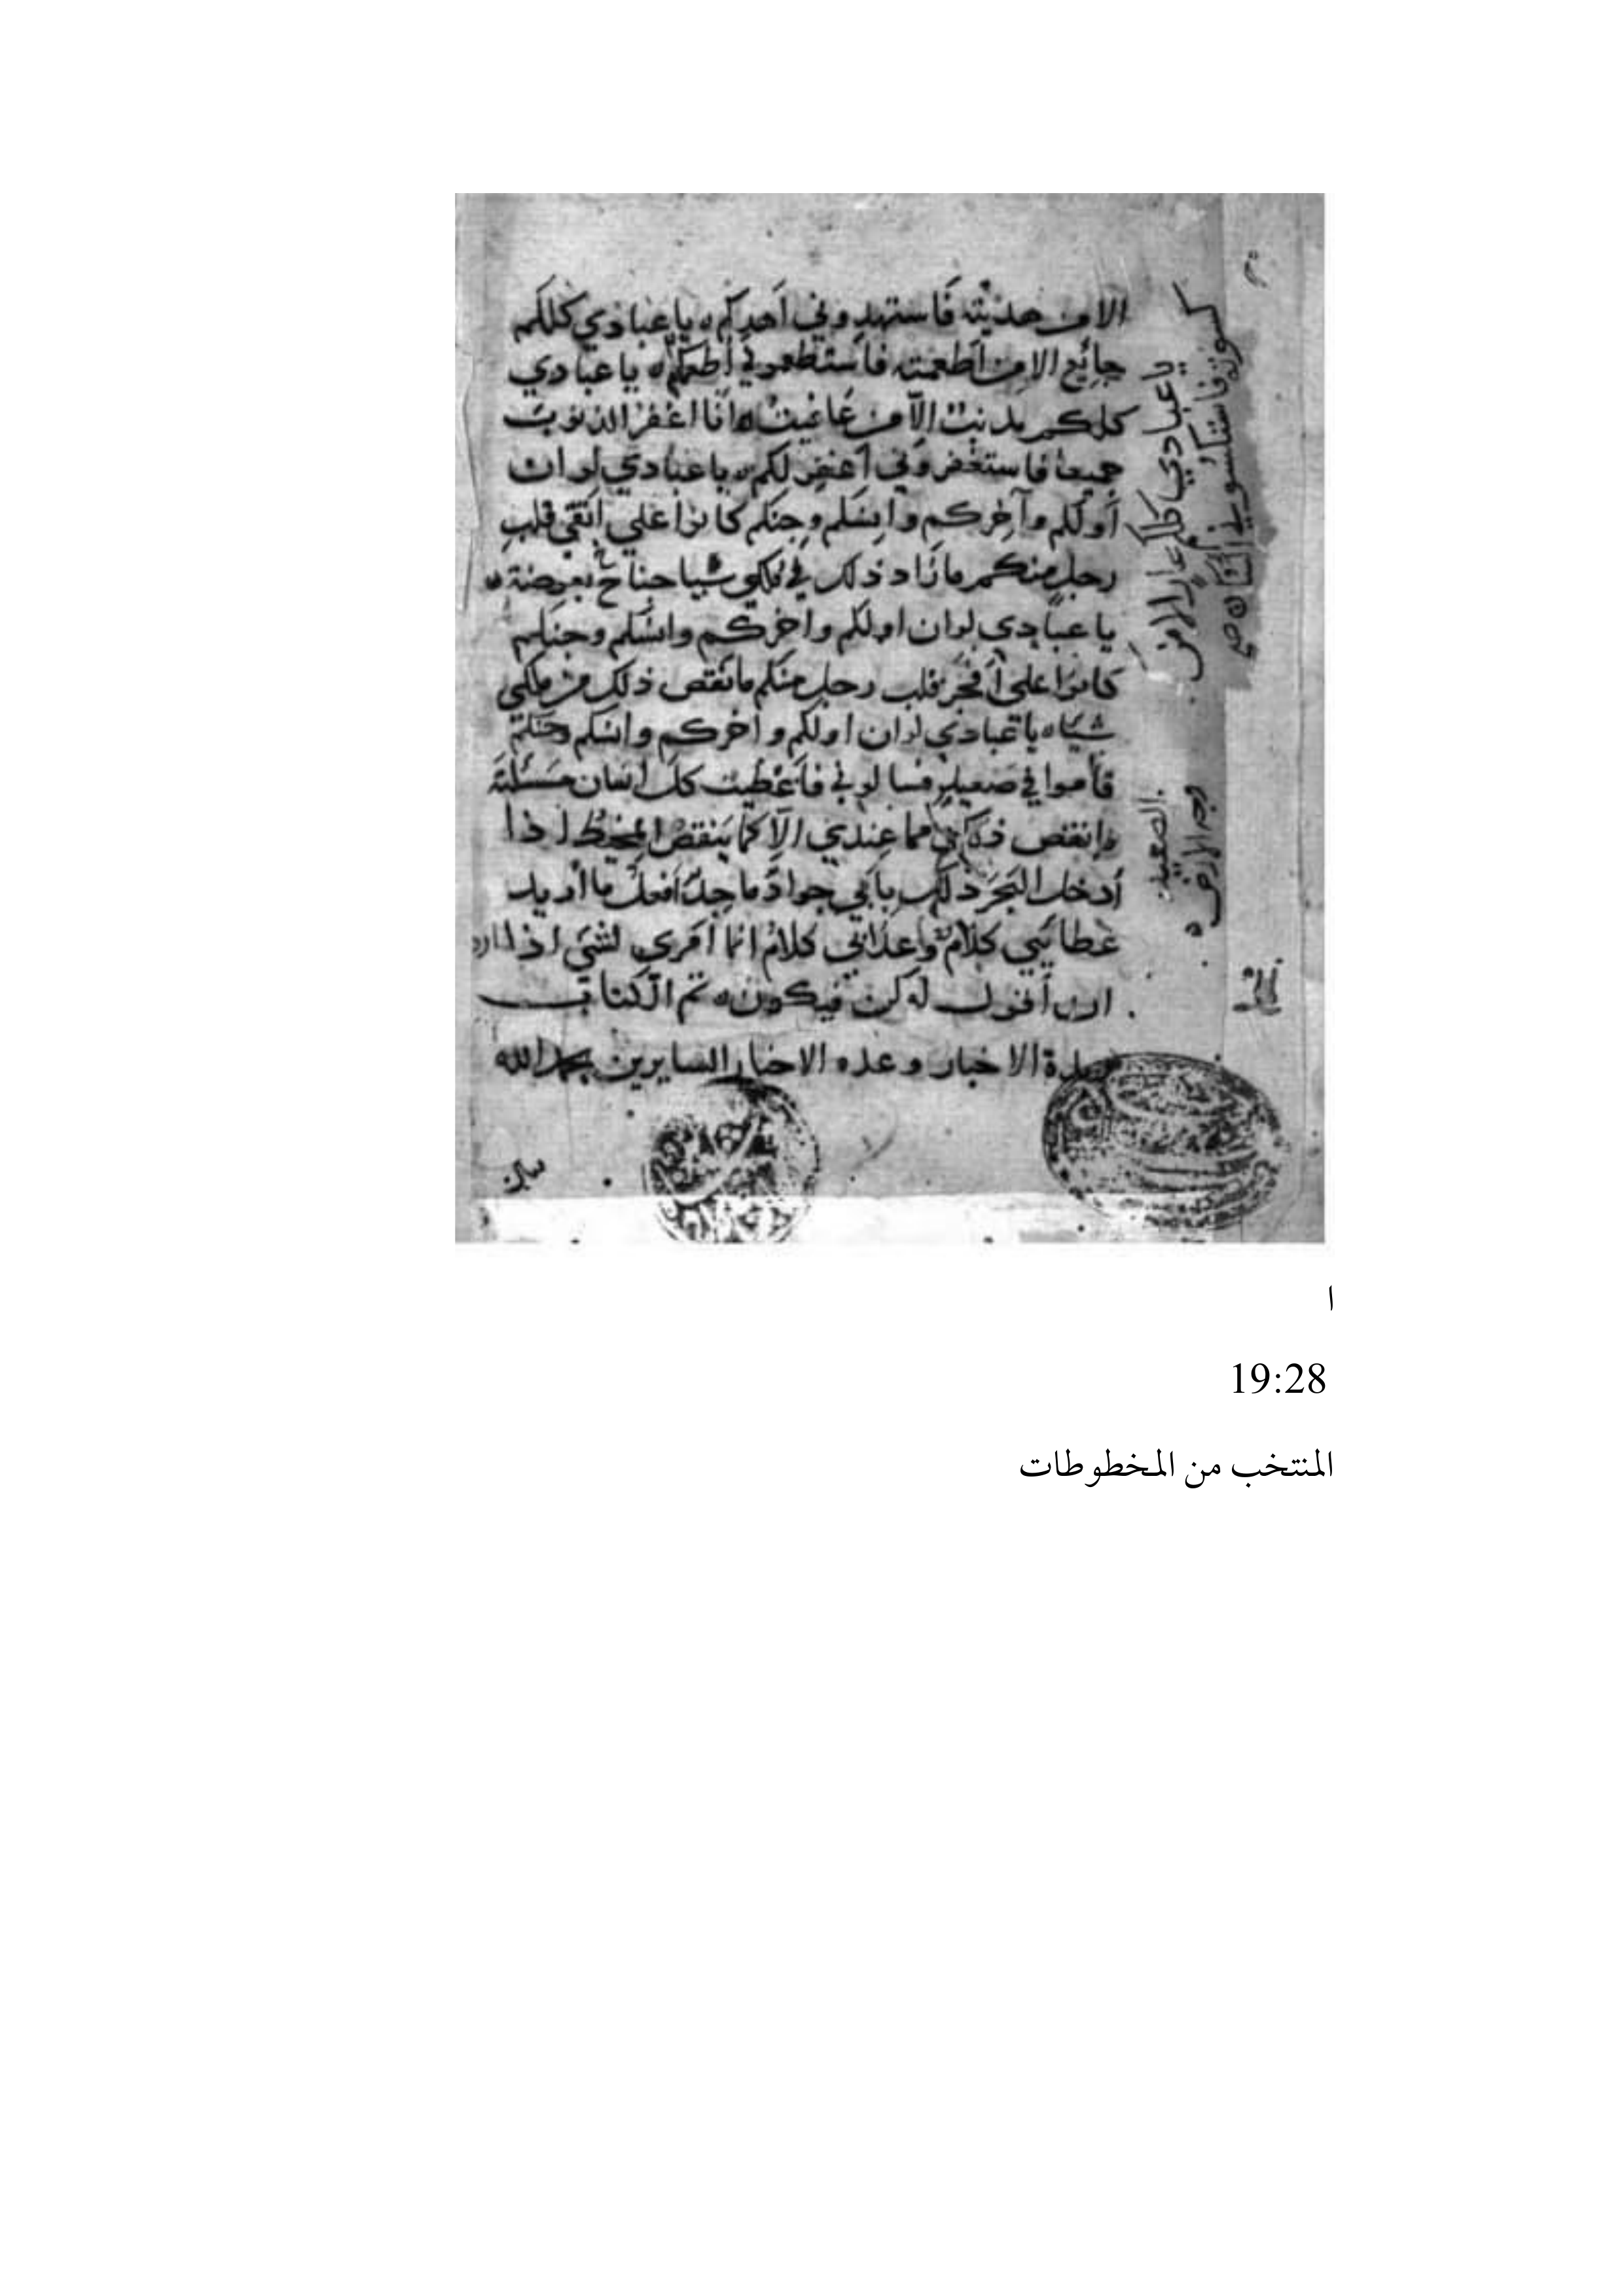 الا من هديته فاستهدوني أهدكم ه يا عبادي كلكم
جائع الا من أطعمته فاستطعموني أطعمكم ه يا عبادي
كلكم مذنب الّا من عافيت ه انا اغفر الذنوب
جميعا فاستغفروني أغفر لكم ه يا عبادي لو ان
أولكم وآخركم وانسكم وجنكم كانوا علي أتقى قلب
رجل منكم ما زاد ذلك في ملكي شيا جناح بعوضة ه
يا عبادي لو ان اولكم واخركم وانسكم وجنكم
كانوا على أفجر قلب رجل منكم ما نقص ذلك من ملكي
شياه يا عبادي لو ان اولكم واخركم وانسكم وجنكم
قاموا في صعيد فسالوني فأعطيت كل انسان مسئلته
ما نقص ذلك مما عندي الّا كما ينقص المخيط اذا
أدخل البحر ذلك بأني جواد ماجد أفعل ما أريد
عطائي كلام وعذابي كلام انما أمري لشي اذا ارد
ان أقول له كن فيكون ه تم الكتاب
الاخبار وعده الاخبار السايرين بحمد الله
يا عبادي كلكم عار الا من
كسوته فاستكسوني أكسكم ه صح
الصعيد
وجه الارض ه
ا
19:28
المنتخب من المخطوطات